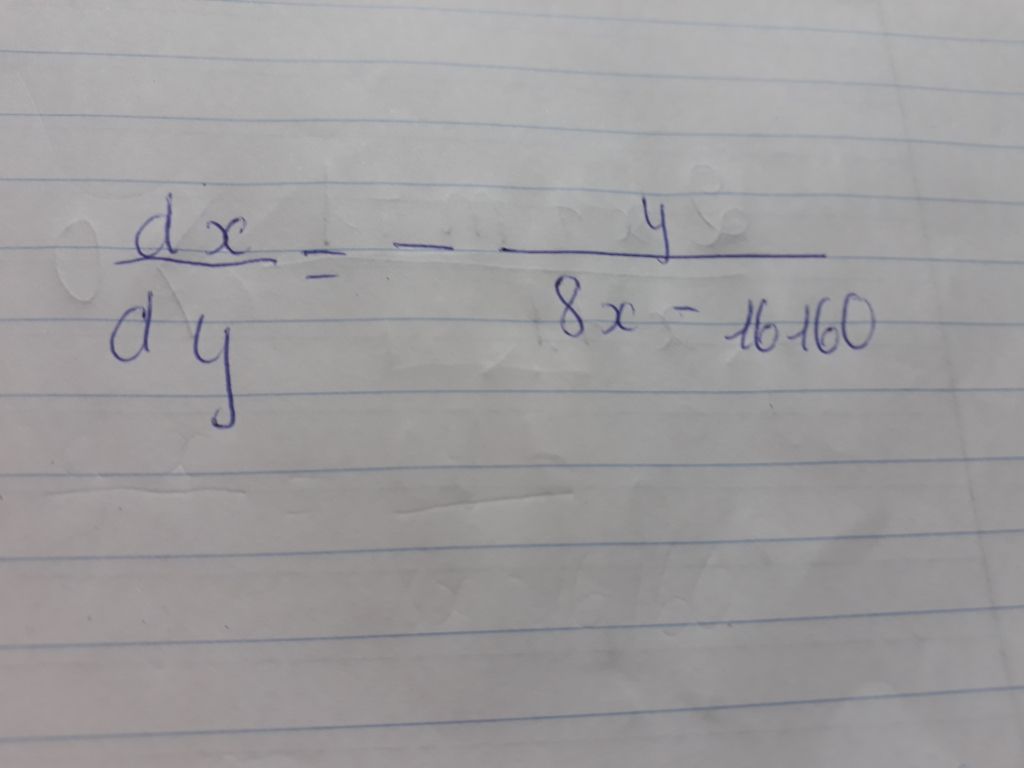 dx/dy = - y/(8x - 16160)